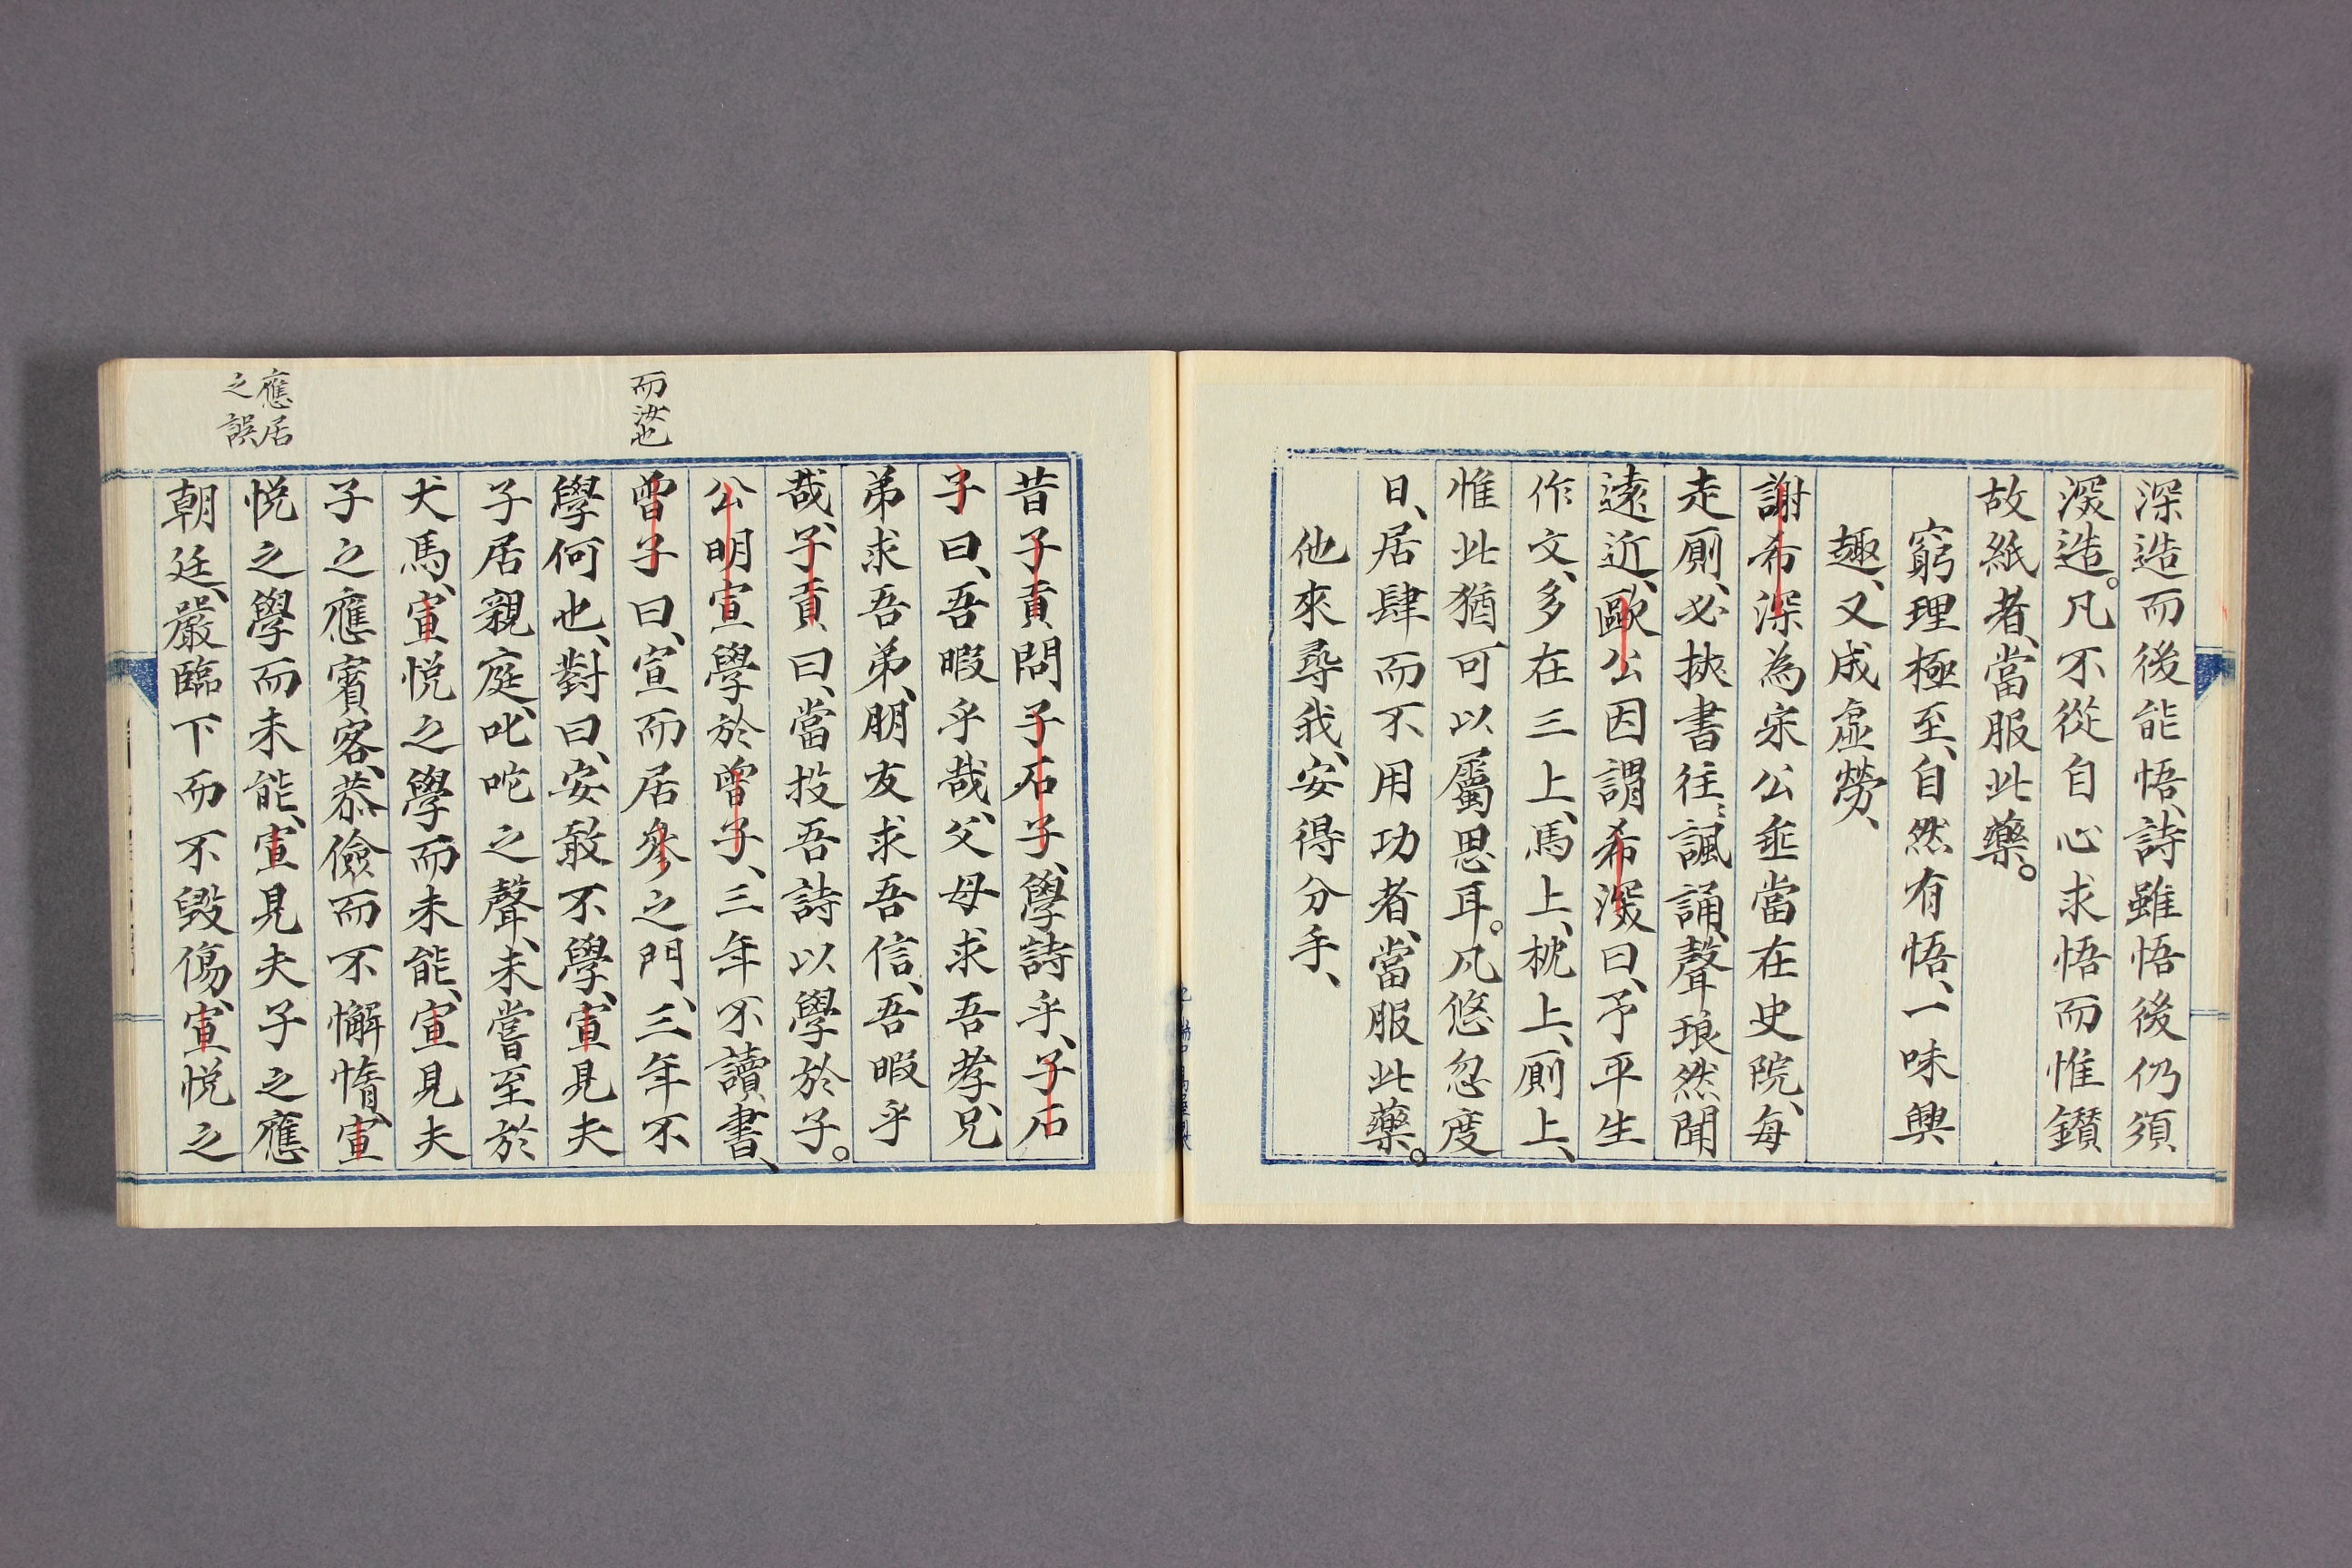 深造而後能悟、詩雖悟後仍須
深造。凡不從自心求悟而惟鑽
故紙者、當服此藥。
窮理極至、自然有悟、一味興
趣、又成虛勞、
謝希深為宋公垂當在史院、每
走厠、必挾書往〻諷誦、聲琅然聞
遠近、歐公因謂希深曰、予平生
作文、多在三上、馬上、枕上、厠上、
惟此猶可以屬思耳。凡悠忽度
日、居肆而不用功者、當服此藥。
他來尋我、安得分手、
而汝也
應居
之誤
昔子貢問子石子、學詩乎、子石
子曰、吾暇乎哉、父母求吾孝、兄
弟求吾弟、朋友求吾信、吾暇乎
哉、子貢曰、當投吾詩以學於子。
公明宣學於曾子、三年不讀書、
曾子曰、宣而居參之門、三年不
學何也、對曰、安敢不學、宣見夫
子居親庭、叱咜之聲、未嘗至於
犬馬、宣悅之學而未能、宣見夫
子之應賓客、恭儉而不懈惰、宣
悅之學而未能、宣見夫子之應
朝廷、嚴臨下而不毀傷、宣悅之